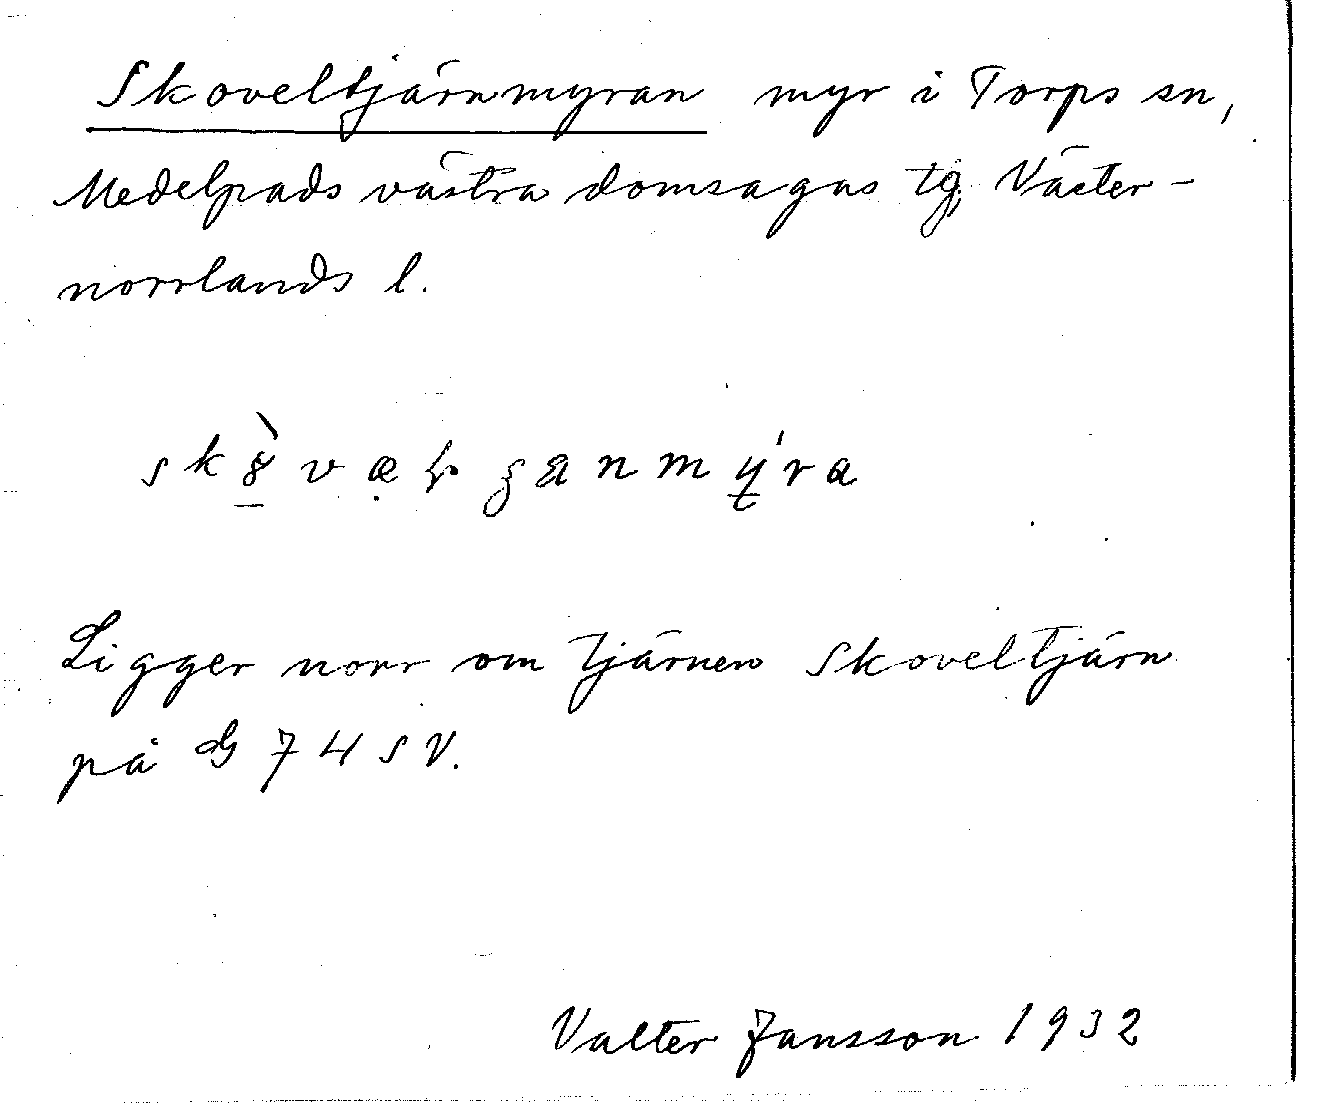 Skoveltjärnmyran myr i Torps sn,
Medelpads västra domsagas tg, Väster-
norrlands l.
Ligger norr om tjärnen Skoveltjärn
på G 74 SV.
Valter Jansson 1932